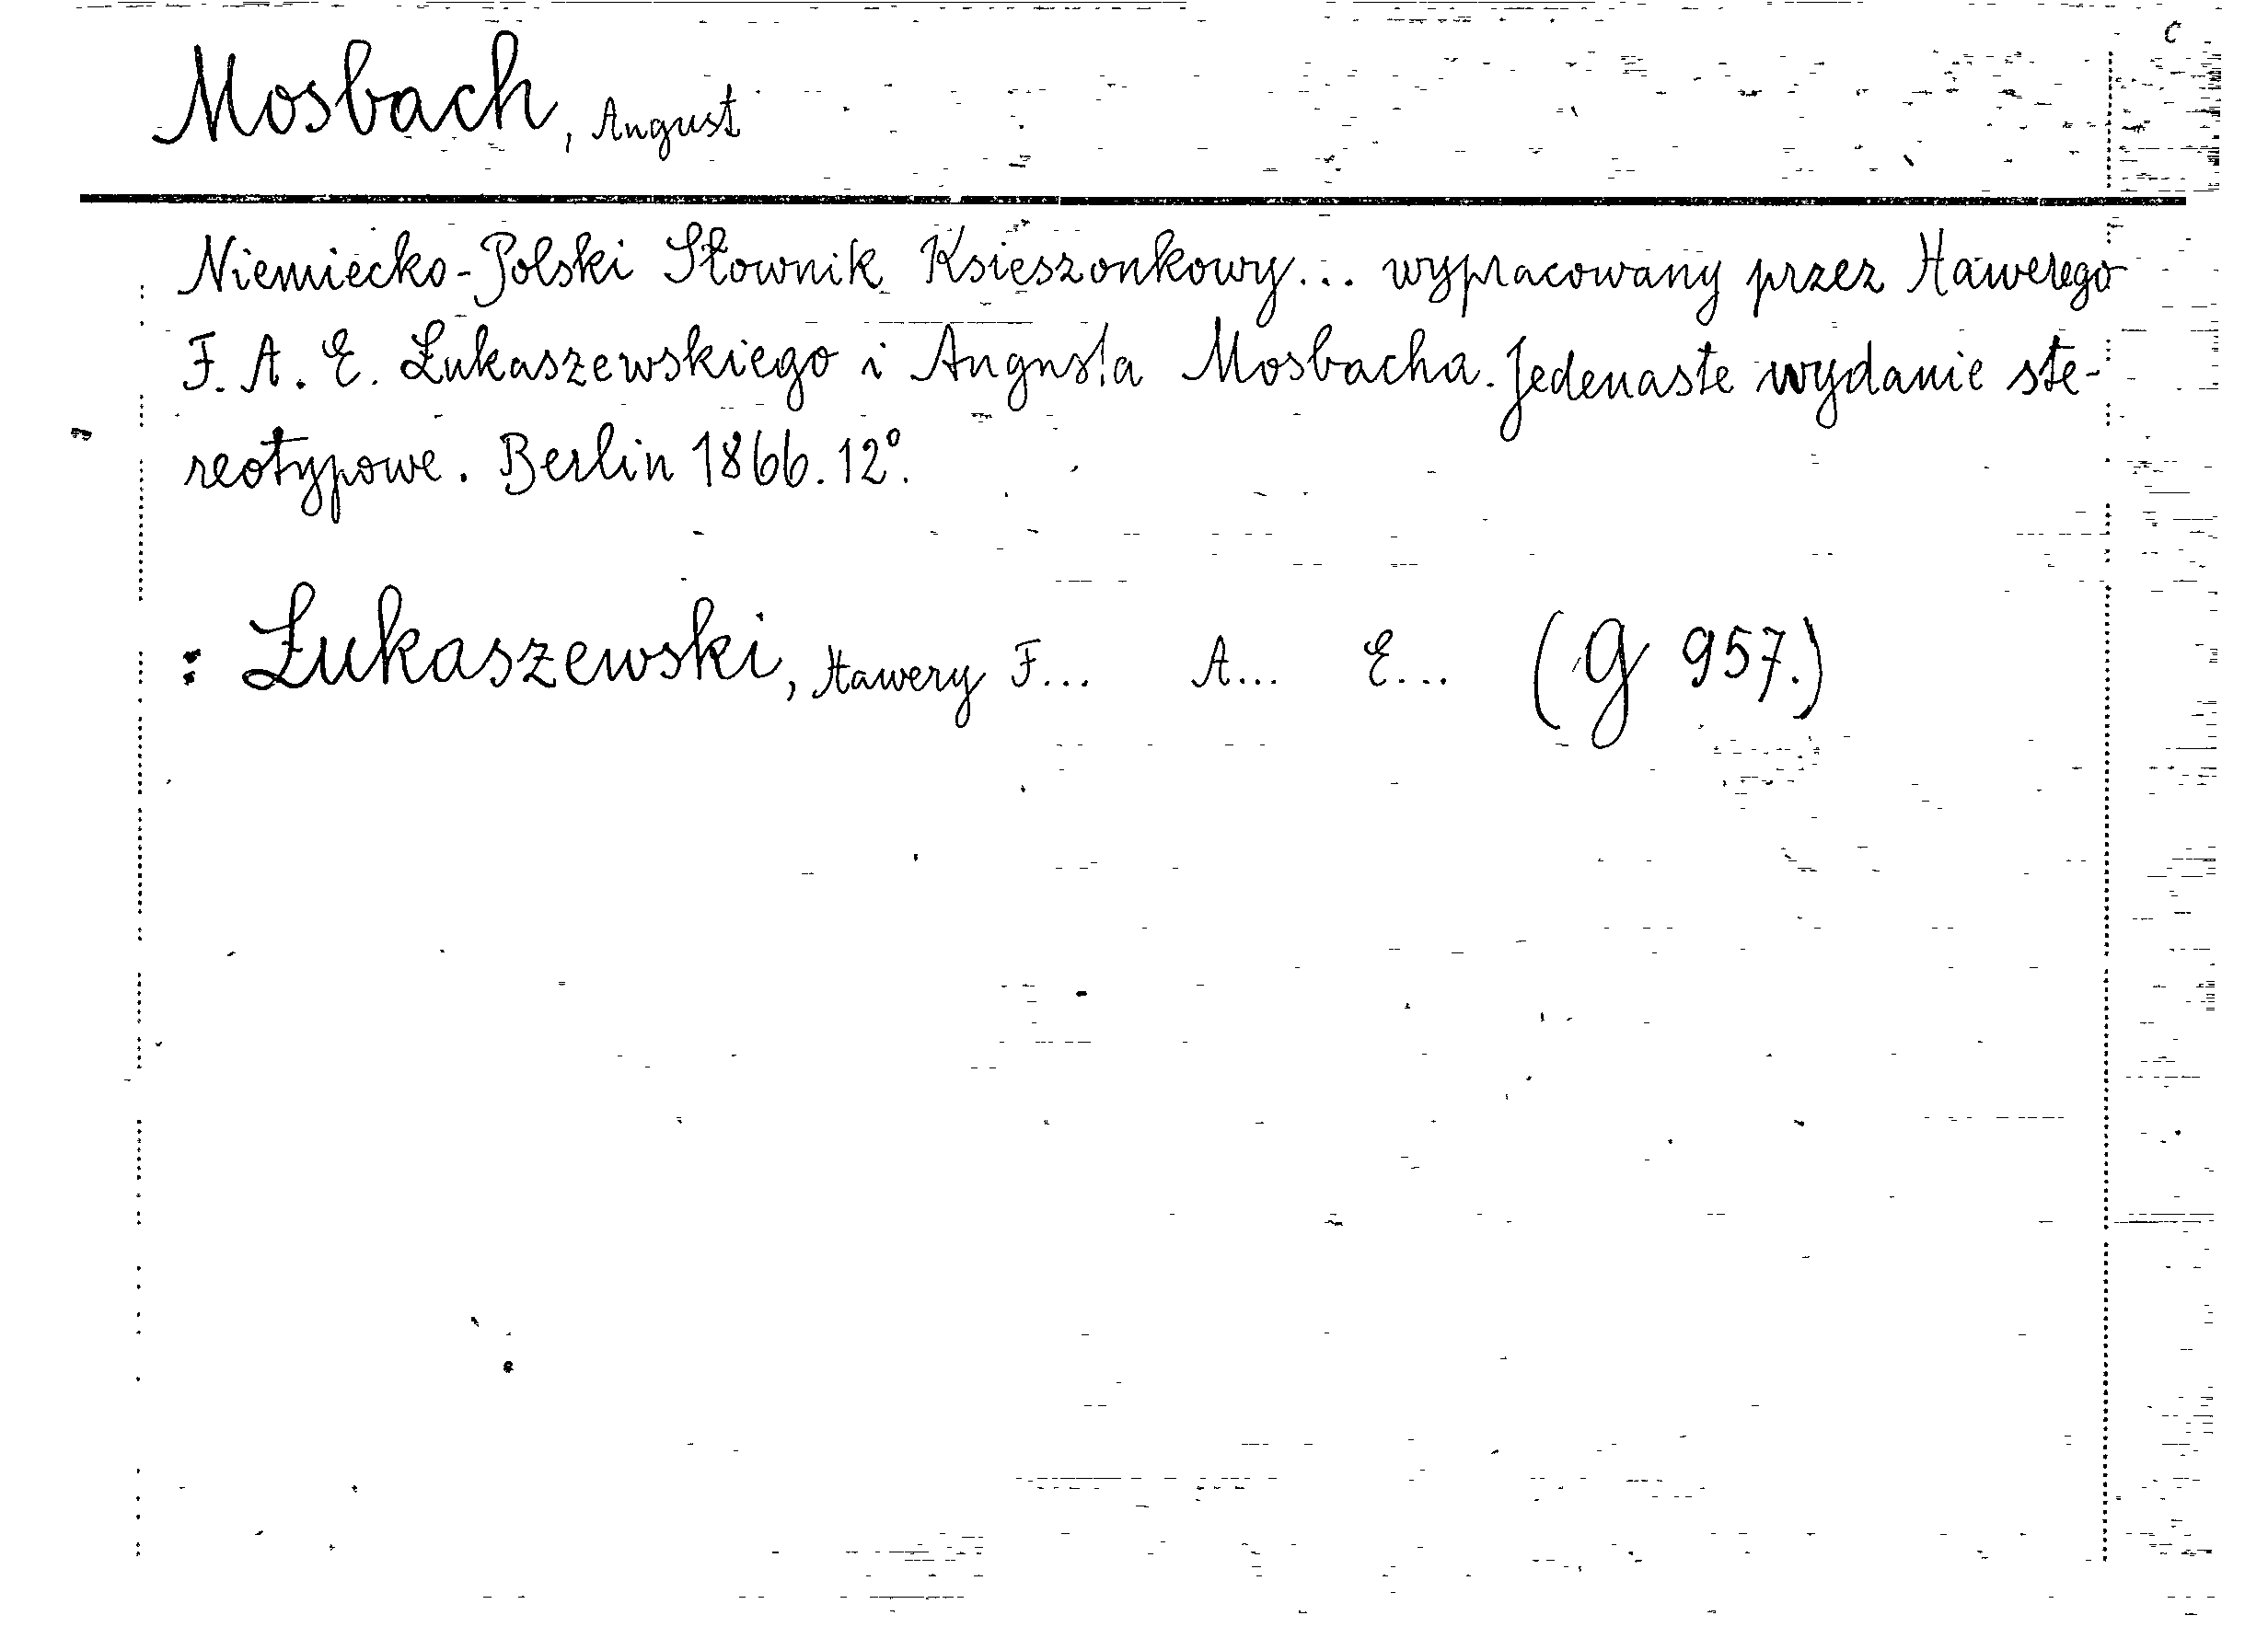 c
Mosbach, August
Niemiecko-Polski Słownik Ksieszonkowy... wypracowany przez Xawerego
F. A. E. Łukaszewskiego i Augusta Mosbacha. Jedenaste wydanie ste-
reotypowe. Berlin 1866. 12°.
: Łukaszewski, Xawery F... A... E... (g 957.)